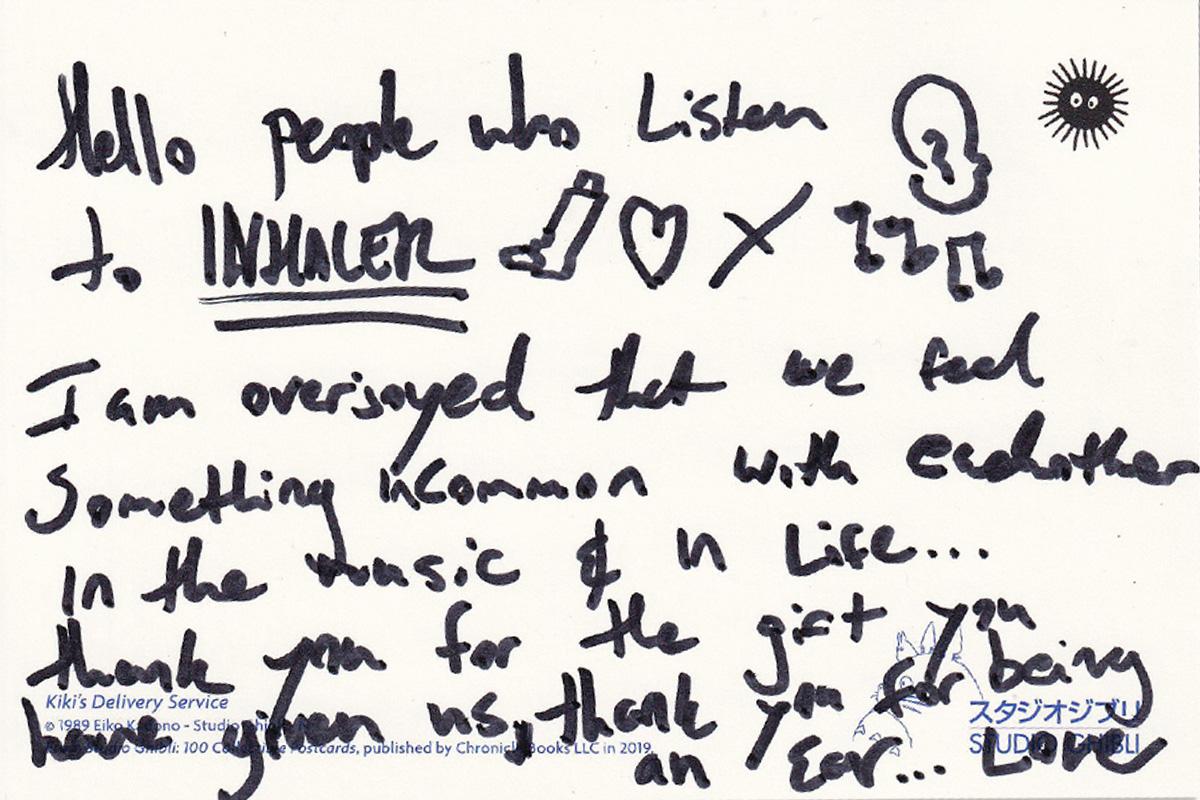 Hello people who Listen
to INHALER X
I am overjoyed that we feel
Something inCommon with eachother
in the music & in Life....
thank you for the gift you
have given us, thank you for being
an Ear... Love
Kiki's Delivery Service
© 1989 Eiko Kadono - Studio Ghibli
From Studio Ghibli: 100 Collectible Postcards, published by Chronicle Books LLC in 2019.
スタジオジブリ
STUDIO GHIBLI